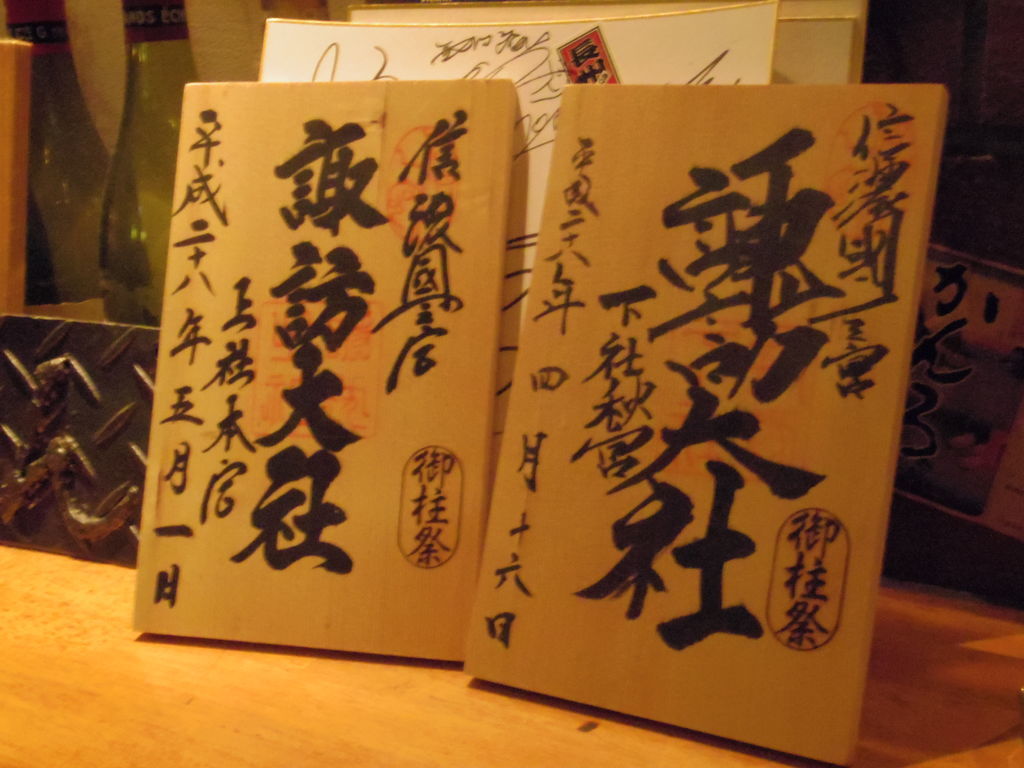 信濃國一之宮
諏訪大社
上社本宮
平成二十八年五月一日
御柱祭
信濃國一之宮
諏訪大社
下社秋宮
平成二十八年四月十六日
御柱祭